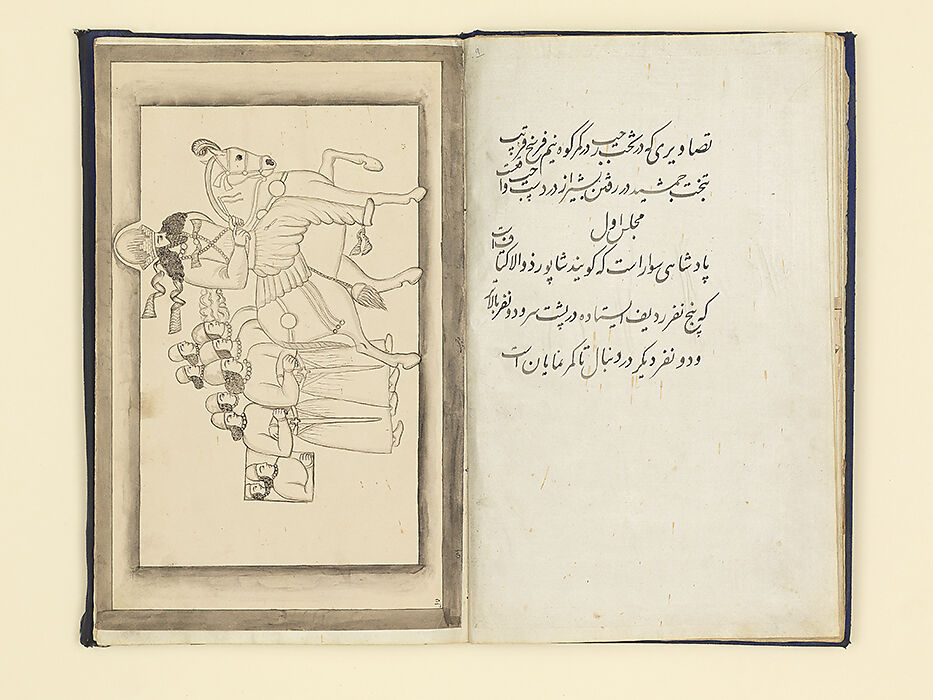 تصاویری که در تخت رجب در کمر کوه نیم فرسخ قریب
بتخت جمشید در رفتن بشیراز در دست واقعست
مجلس اول
پادشاهی سوار است که گویند شاپور ذوالاکتاف است
که پنج نفر ردیف ایستاده در پشت سر و دو نفر بالاتر
و دو نفر دیگر در دنبال تا کمر نمایان است